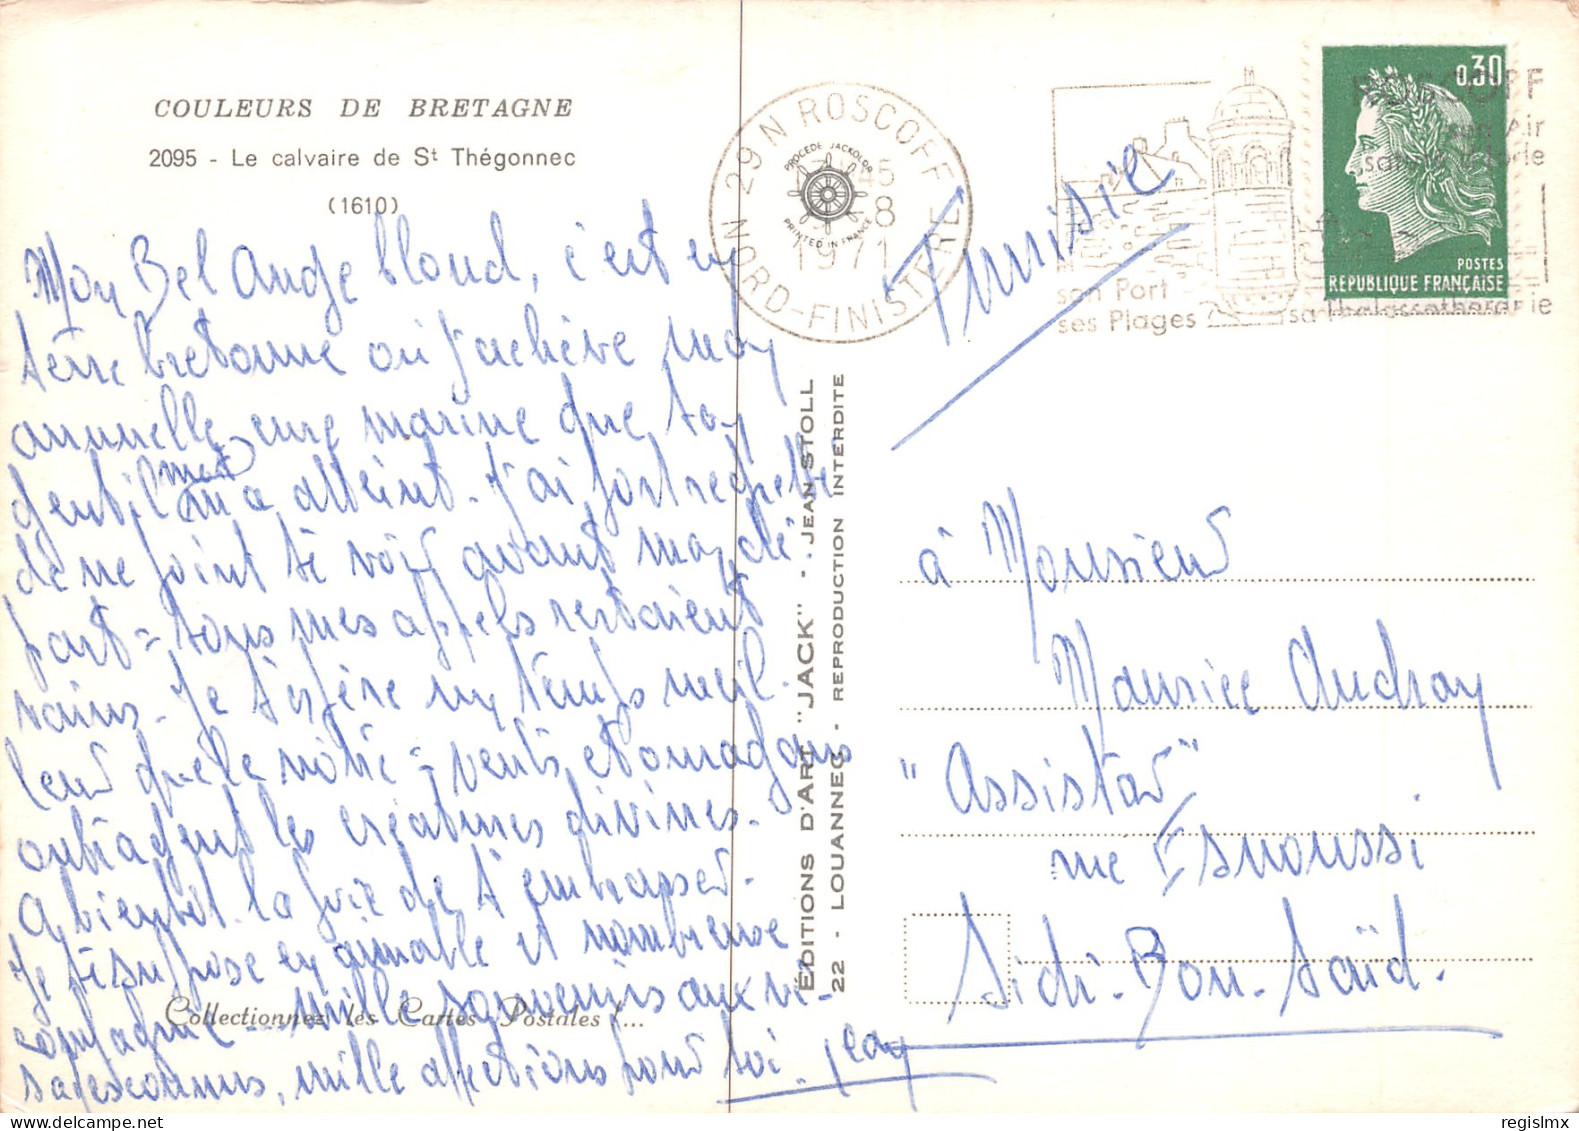 COULEURS DE BRETAGNE
2095 - Le calvaire de St Thégonnec
(1610)
Mon Bel Ange blond, c'est en
terre bretonne où j'achève moy
annuelle cure marine que toy
gentil mot m'a atteint - J'ai fort regretté
de ne point te voir avant moy dé
part = tous mes appels restaient
vains - Je t'espère un temps meil-
leur que le nôtre = vents et ouragans
outragent les créatures divines.
A bientôt la joie de t'embrasser.
Je te suppose en aimable et nombreuse
compagnie - mille souvenirs aux vi-
sages connus, mille affections pour toi - Jean
Collectionnez les Cartes Postales !...
ÉDITIONS D'ART "JACK" - JEAN STOLL
22 - LOUANNEC - REPRODUCTION INTERDITE
29 N ROSCOFF
NORD-FINISTERE
45
-8
1971
PROCEDE JACKOLOR
PRINTED IN FRANCE
ROSCOFF
son Air
son Port
ses Plages
sa Thalassothérapie
0,30
POSTES
REPUBLIQUE FRANÇAISE
Tunisie
à Monsieur
Maurice Audray
"Assistar"
rue Esnoussi
Sidi-Bou-Saïd.
regislmx